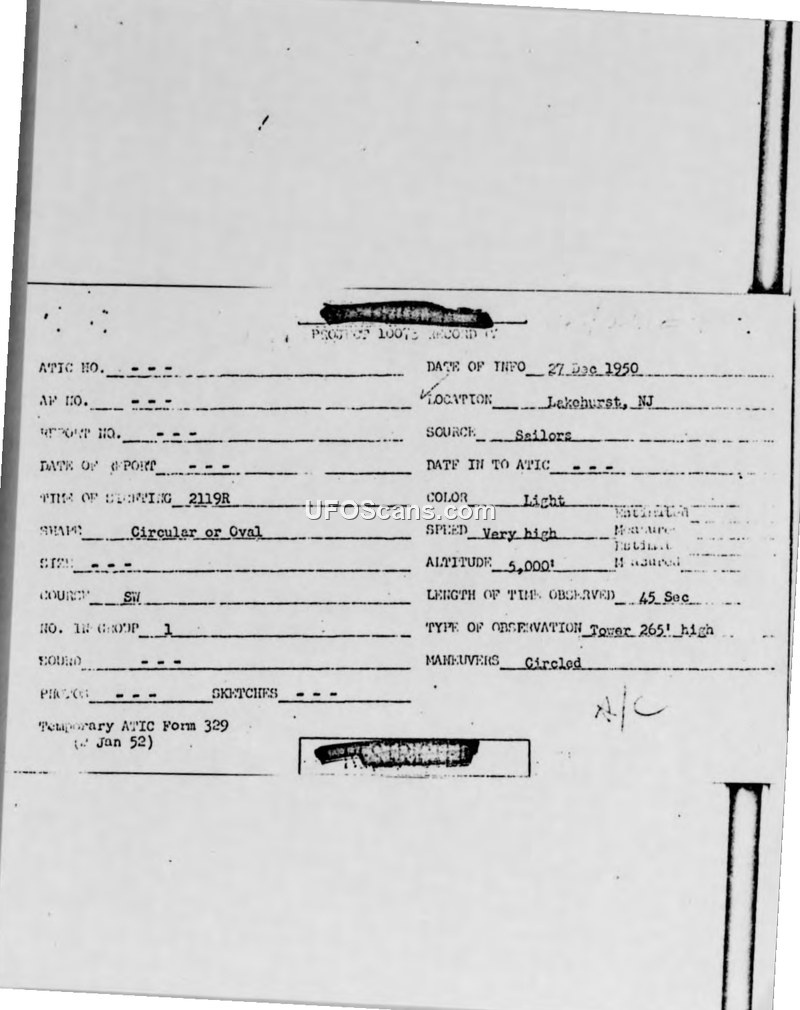 PROJECT 10073 RECORD
ATIC NO. - - -
DATE OF INFO 27 Dec 1950
AF NO. - - -
LOCATION Lakehurst, NJ
REPORT NO. - - -
SOURCE Sailors
DATE OF REPORT - - -
DATE IN TO ATIC - - -
TIME OF SIGHTING 2119R
COLOR Light
UFOScans.com
SHAPE Circular or Oval
SPEED Very high
Estimated
Measured
SIZE - - -
ALTITUDE 5,000'
Estimated
Measured
COURSE SW
LENGTH OF TIME OBSERVED 45 Sec
NO. IN GROUP 1
TYPE OF OBSERVATION Tower 265' high
SOUND - - -
MANEUVERS Circled
PHOTOS - - - SKETCHES - - -
A/C
Temporary ATIC Form 329
(2 Jan 52)